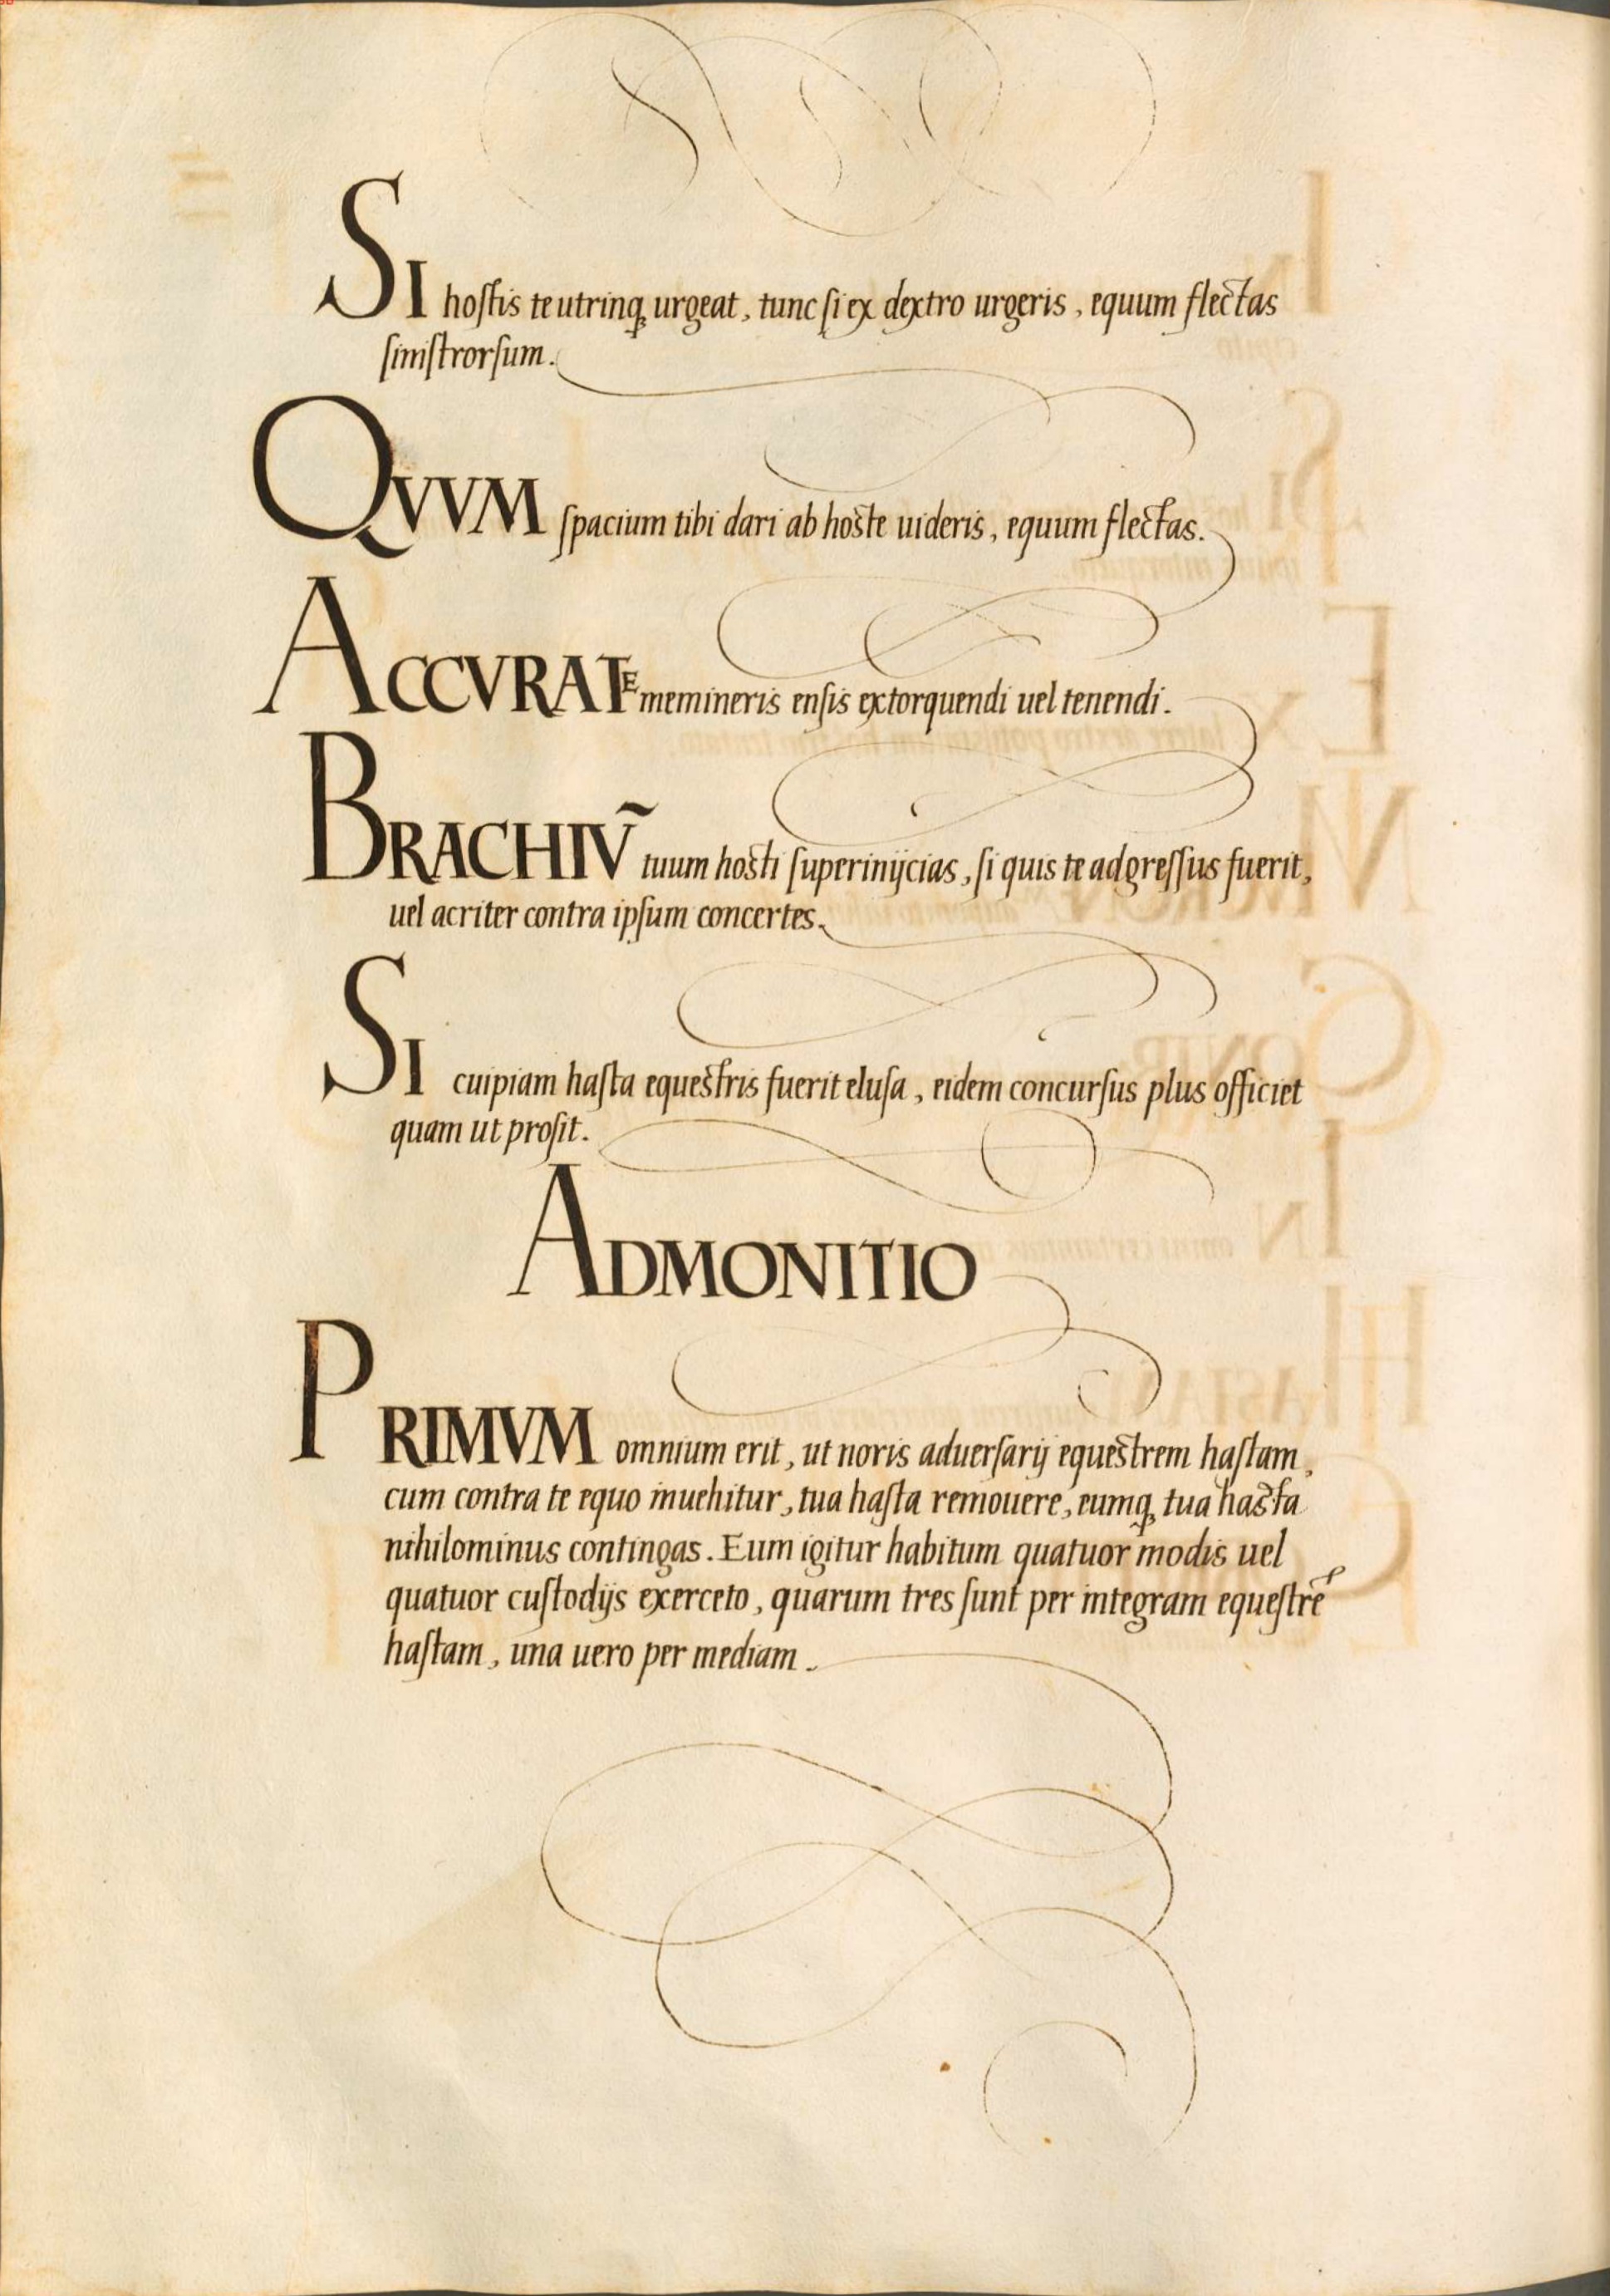 SI hoſtis te utrinq; urgeat, tunc ſi ex dextro urgeris, equum flectas
ſiniſtrorſum.
QVVM ſpacium tibi dari ab hoste uideris, equum flectas.
ACCVRATE memineris enſis extorquendi uel tenendi.
BRACHIṼ tuum hosti ſuperinijcias, ſi quis te adgreſſus fuerit,
uel acriter contra ipſum concertes.
SI cuipiam haſta equestris fuerit eluſa, eidem concurſus plus officiet
quam ut proſit.
ADMONITIO
PRIMVM omnium erit, ut noris aduerſarij equestrem haſtam,
cum contra te equo inuehitur, tua haſta remouere, eumq; tua hasta
nihilominus contingas. Eum igitur habitum quatuor modis uel
quatuor cuſtodijs exerceto, quarum tres ſunt per integram equeſtrē
haſtam, una uero per mediam.